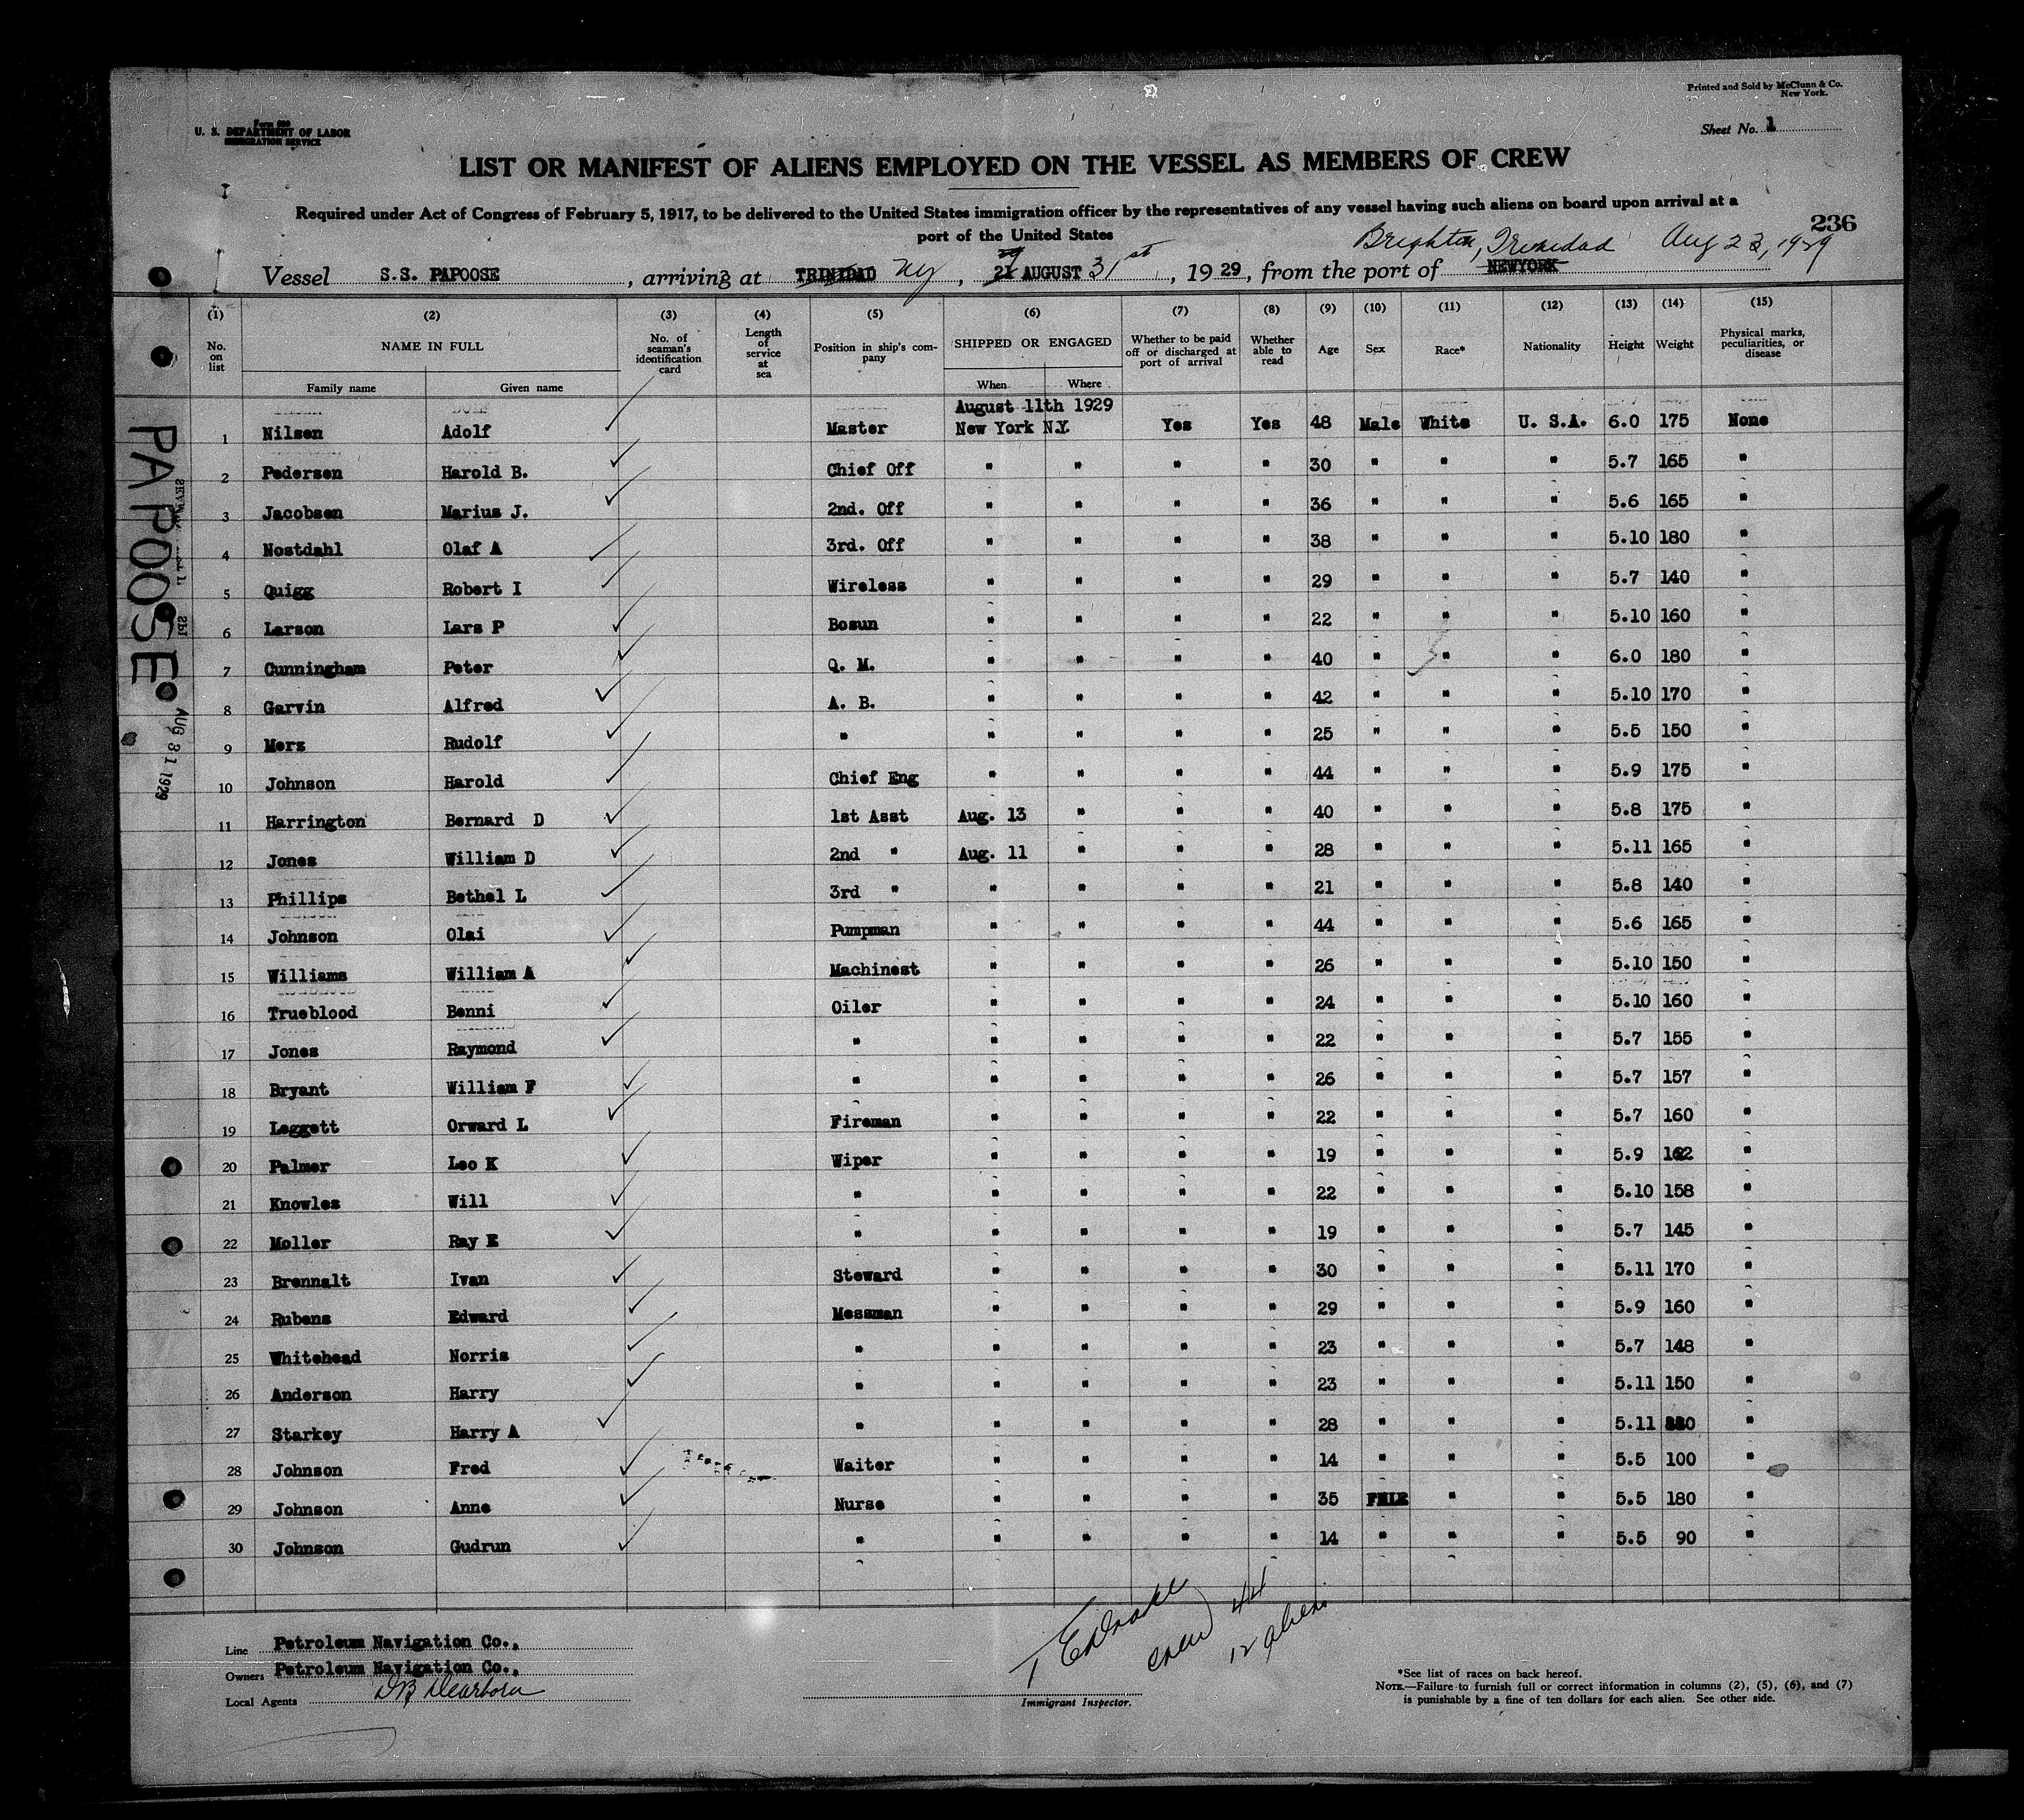 Printed and Sold by McClunn & Co.
New York.
Form 680
U. S. DEPARTMENT OF LABOR
IMMIGRATION SERVICE
Sheet No. 1
LIST OR MANIFEST OF ALIENS EMPLOYED ON THE VESSEL AS MEMBERS OF CREW
Required under Act of Congress of February 5, 1917, to be delivered to the United States immigration officer by the representatives of any vessel having such aliens on board upon arrival at a
port of the United States
236
Brighton, Trinidad Aug 23, 1929
Vessel S.S. PAPOOSE, arriving at TRINIDAD NY, 21 AUGUST 31st, 19 29, from the port of NEWYORK
(1) (2) (3) (4) (5) (6) (7) (8) (9) (10) (11) (12) (13) (14) (15)
No. on list NAME IN FULL No. of seaman's identification card Length of service at sea Position in ship's company SHIPPED OR ENGAGED Whether to be paid off or discharged at port of arrival Whether able to read Age Sex Race* Nationality Height Weight Physical marks, peculiarities, or disease
Family name Given name When Where
August 11th 1929
1 Nilsen Adolf Master New York N.Y. Yes Yes 48 Male White U. S.A. 6.0 175 None
2 Pedersen Harold B. Chief Off " " " " 30 " " " 5.7 165 "
3 Jacobsen Marius J. 2nd. Off " " " " 36 " " " 5.6 165 "
4 Nostdahl Olaf A 3rd. Off " " " " 38 " " " 5.10 180 "
5 Quigg Robert I Wireless " " " " 29 " " " 5.7 140 "
6 Larson Lars P Bosun " " " " 22 " " " 5.10 160 "
7 Cunningham Peter Q. M. " " " " 40 " " " 6.0 180 "
8 Garvin Alfred A. B. " " " " 42 " " " 5.10 170 "
9 Merz Rudolf " " " " " 25 " " " 5.5 150 "
10 Johnson Harold Chief Eng " " " " 44 " " " 5.9 175 "
11 Harrington Bernard D 1st Asst Aug. 13 " " " 40 " " " 5.8 175 "
12 Jones William D 2nd " Aug. 11 " " " 28 " " " 5.11 165 "
13 Phillips Bethel L 3rd " " " " " 21 " " " 5.8 140 "
14 Johnson Olai Pumpman " " " " 44 " " " 5.6 165 "
15 Williams William A Machinest " " " " 26 " " " 5.10 150 "
16 Trueblood Benni Oiler " " " " 24 " " " 5.10 160 "
17 Jones Raymond " " " " " 22 " " " 5.7 155 "
18 Bryant William F " " " " " 26 " " " 5.7 157 "
19 Leggett Orward L Fireman " " " " 22 " " " 5.7 160 "
20 Palmer Leo K Wiper " " " " 19 " " " 5.9 162 "
21 Knowles Will " " " " " 22 " " " 5.10 158 "
22 Moller Ray E " " " " " 19 " " " 5.7 145 "
23 Brennalt Ivan Steward " " " " 30 " " " 5.11 170 "
24 Rubens Edward Messman " " " " 29 " " " 5.9 160 "
25 Whitehead Norris " " " " " 23 " " " 5.7 148 "
26 Anderson Harry " " " " " 23 " " " 5.11 150 "
27 Starkey Harry A " " " " " 28 " " " 5.11 "
28 Johnson Fred Waiter " " " " 14 " " " 5.5 100 "
29 Johnson Anne Nurse " " " " 35 FMLE " " 5.5 180 "
30 Johnson Gudrun " " " " " 14 " " " 5.5 90 "
PAPOOSE
AUG 31 1929
Line Petroleum Navigation Co.,
Owners Petroleum Navigation Co.,
Local Agents DB Dearborn
crew 44
12 aliens
Immigrant Inspector.
*See list of races on back hereof.
NOTE.—Failure to furnish full or correct information in columns (2), (5), (6), and (7)
is punishable by a fine of ten dollars for each alien. See other side.